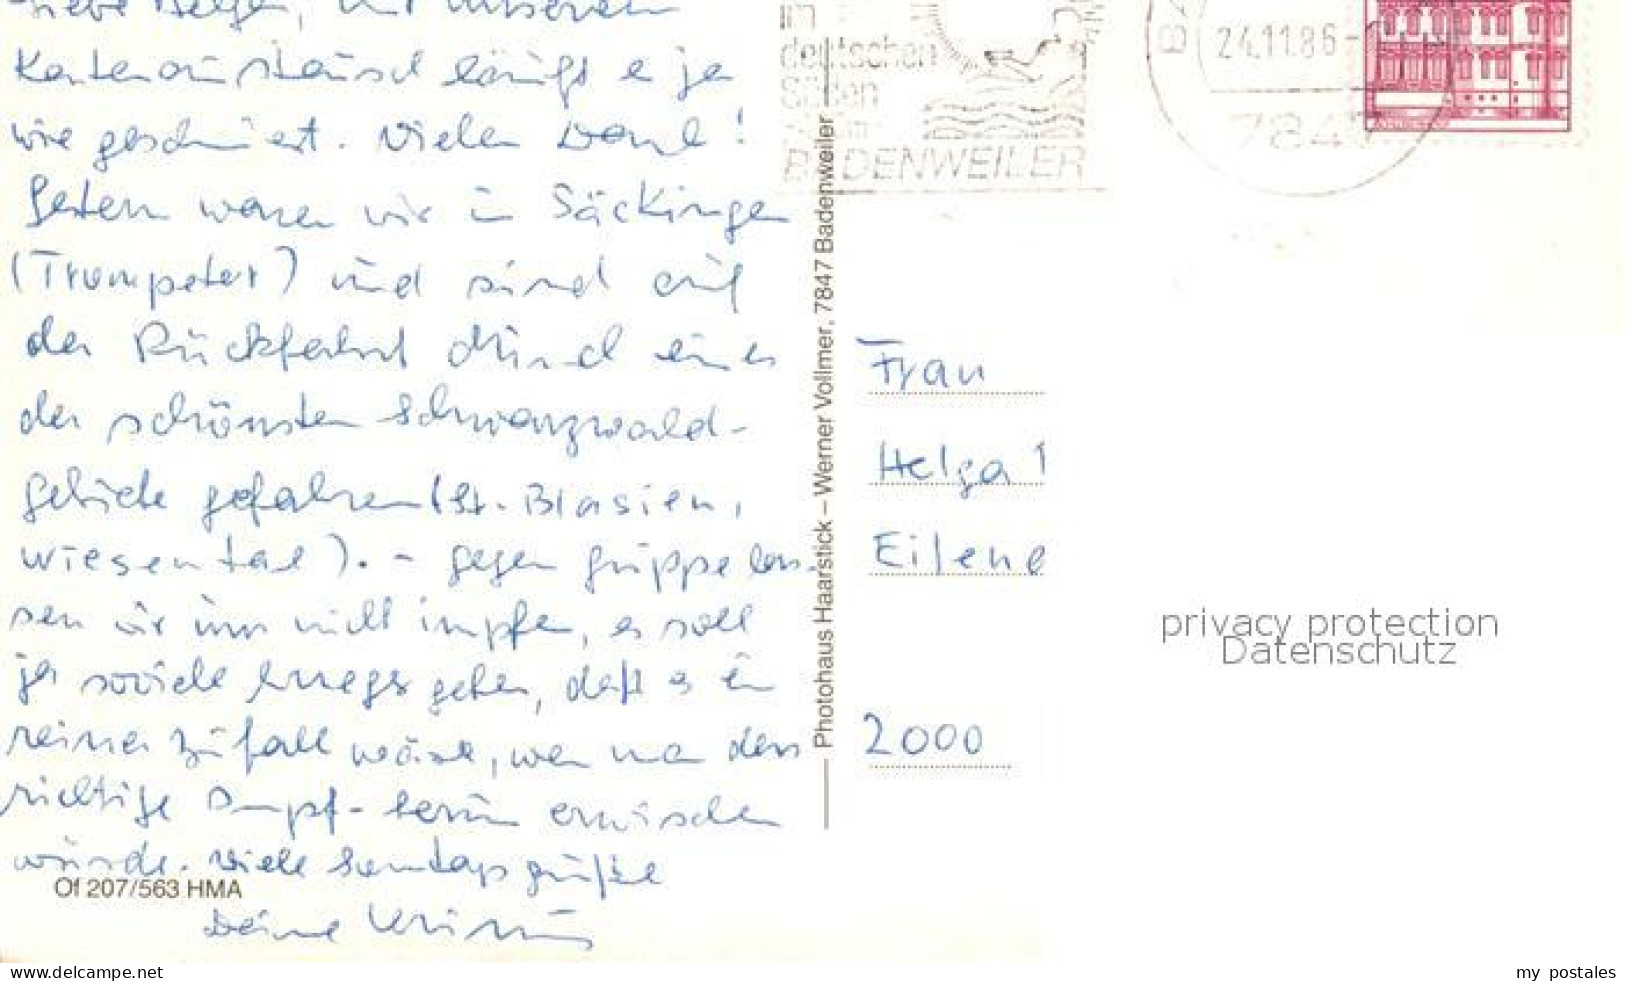 Liebe Helga, mit unserem
Kartenaustausch läuft es ja
wie geschmiert. Vielen Dank!
Gestern waren wir in Säckingen
(Trompeter) und sind auf
der Rückfahrt durch eines
der schönsten Schwarzwald-
gebiete gefahren (St. Blasien,
Wiesental). - Gegen Grippe las-
sen wir uns nicht impfen, es soll
ja soviele Erreger geben, daß es ein
reiner Zufall wäre, wenn man den
richtigen Impf-termin erwischen
würde. Viele Sonntagsgrüße
Deine
Of 207/563 HMA
Photohaus Haarstick – Werner Vollmer, 7847 Badenweiler
im
deutschen
Süden
BADENWEILER
24.11.86
784
Frau
Helga
Eilene
2000
privacy protection
Datenschutz
www.delcampe.net
my postales